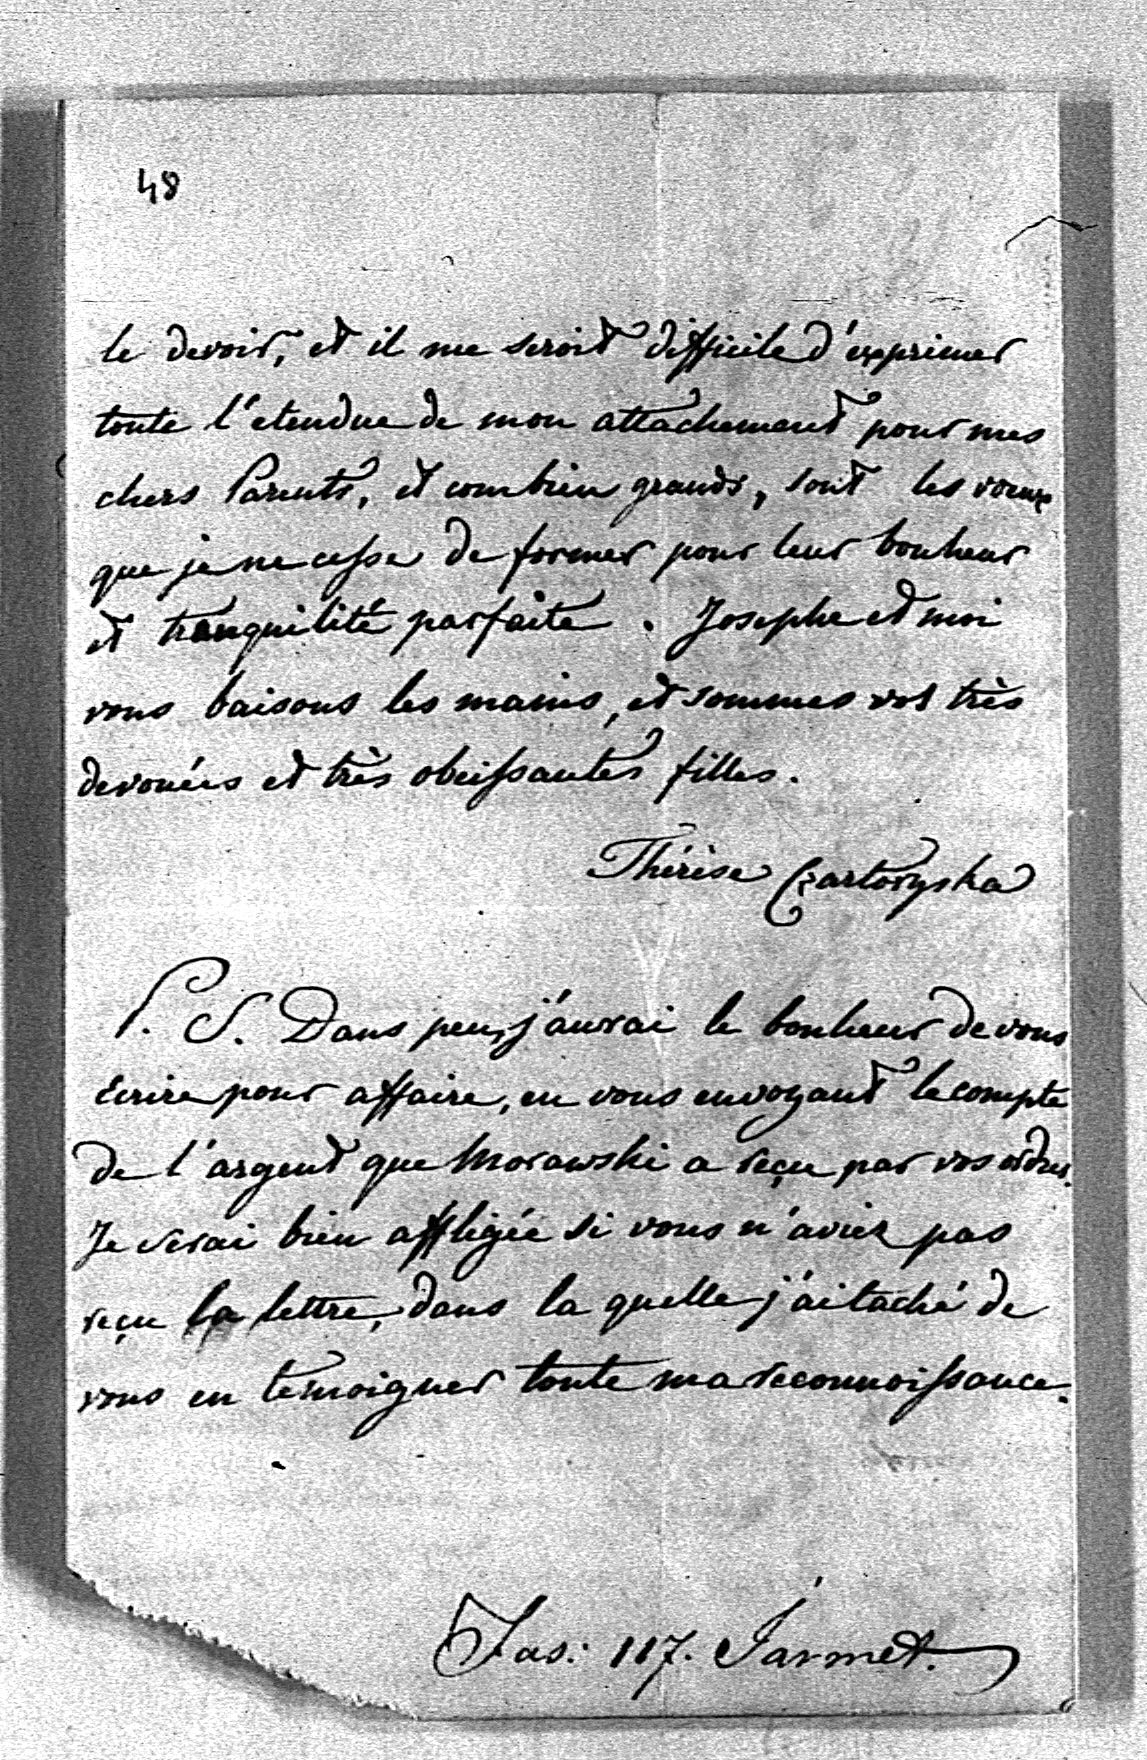 48
le devoir, et il me seroit difficile d'exprimer
toute l'etendue de mon attachement pour mes
chers Parents, et combien grands, sont les voeux
que je ne cesse de former pour leur bonheur
et tranquilité parfaite. Josephe et moi
vous baisons les mains, et sommes vos très
devouées et très obeissantes filles.
Thérèse Czartoryska
P. S. Dans peu, j'aurai le bonheur de vous
ecrire pour affaire, en vous envoyant le compte
de l'argent que Morawski a reçu par vos ordres.
Je serai bien affligée si vous n'aviez pas
reçu la lettre, dans la quelle j'ai taché de
vous en temoigner toute ma reconnoissance.
Fas: 117. Jarmet.